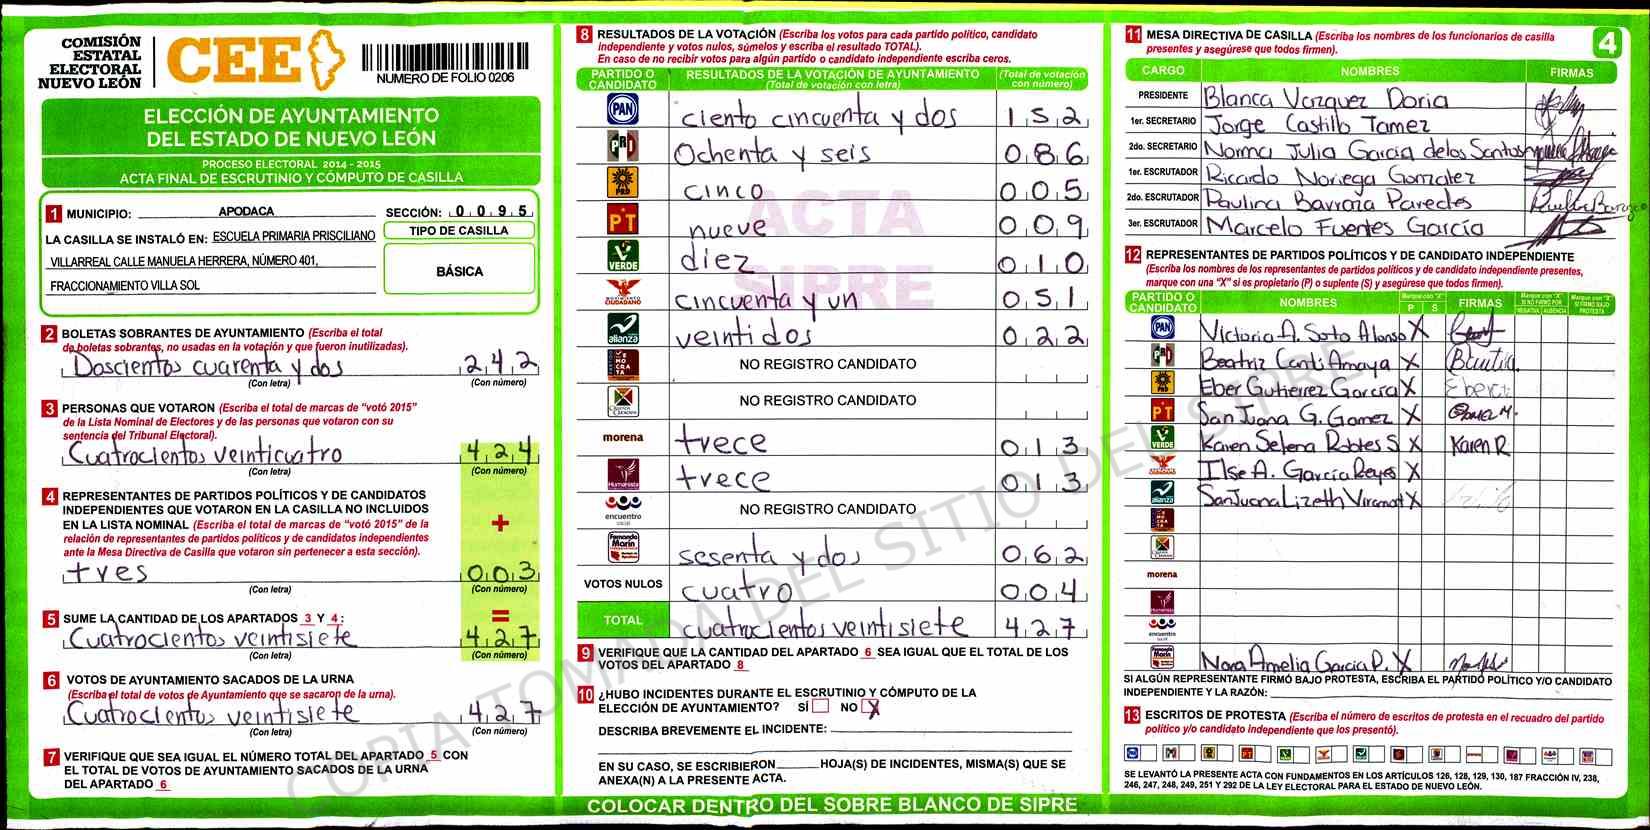 COMISIÓN
ESTATAL
ELECTORAL
NUEVO LEÓN
CEE
NUMERO DE FOLIO 0206
ELECCIÓN DE AYUNTAMIENTO
DEL ESTADO DE NUEVO LEÓN
PROCESO ELECTORAL 2014 - 2015
ACTA FINAL DE ESCRUTINIO Y CÓMPUTO DE CASILLA
1 MUNICIPIO: APODACA SECCIÓN: 0 0 9 5
LA CASILLA SE INSTALÓ EN: ESCUELA PRIMARIA PRISCILIANO
VILLARREAL CALLE MANUELA HERRERA, NÚMERO 401,
FRACCIONAMIENTO VILLA SOL
TIPO DE CASILLA
BÁSICA
2 BOLETAS SOBRANTES DE AYUNTAMIENTO (Escriba el total
de boletas sobrantes, no usadas en la votación y que fueron inutilizadas).
Doscientos cuarenta y dos 2 4 2
(Con letra) (Con número)
3 PERSONAS QUE VOTARON (Escriba el total de marcas de "votó 2015"
de la Lista Nominal de Electores y de las personas que votaron con su
sentencia del Tribunal Electoral).
Cuatrocientos veinticuatro 4 2 4
(Con letra) (Con número)
4 REPRESENTANTES DE PARTIDOS POLÍTICOS Y DE CANDIDATOS
INDEPENDIENTES QUE VOTARON EN LA CASILLA NO INCLUIDOS
EN LA LISTA NOMINAL (Escriba el total de marcas de "votó 2015" de la
relación de representantes de partidos políticos y de candidatos independientes
ante la Mesa Directiva de Casilla que votaron sin pertenecer a esta sección).
+
tres 0 0 3
(Con letra) (Con número)
5 SUME LA CANTIDAD DE LOS APARTADOS 3 Y 4: =
Cuatrocientos veintisiete 4 2 7
(Con letra) (Con número)
6 VOTOS DE AYUNTAMIENTO SACADOS DE LA URNA
(Escriba el total de votos de Ayuntamiento que se sacaron de la urna).
Cuatrocientos veintisiete 4 2 7
(Con letra) (Con número)
7 VERIFIQUE QUE SEA IGUAL EL NÚMERO TOTAL DEL APARTADO 5 CON
EL TOTAL DE VOTOS DE AYUNTAMIENTO SACADOS DE LA URNA
DEL APARTADO 6
8 RESULTADOS DE LA VOTACIÓN (Escriba los votos para cada partido político, candidato
independiente y votos nulos, súmelos y escriba el resultado TOTAL).
En caso de no recibir votos para algún partido o candidato independiente escriba ceros.
PARTIDO O CANDIDATO RESULTADOS DE LA VOTACIÓN DE AYUNTAMIENTO (Total de votación con letra) (Total de votación con número)
PAN ciento cincuenta y dos 1 5 2
PRI Ochenta y seis 0 8 6
PRD cinco 0 0 5
PT nueve 0 0 9
VERDE diez 0 1 0
CIUDADANO cincuenta y un 0 5 1
alianza veintidos 0 2 2
NO REGISTRO CANDIDATO
NO REGISTRO CANDIDATO
morena trece 0 1 3
Humanista trece 0 1 3
encuentro social NO REGISTRO CANDIDATO
Fernando Marín sesenta y dos 0 6 2
VOTOS NULOS cuatro 0 0 4
TOTAL cuatrocientos veintisiete 4 2 7
ACTA
SIPRE
9 VERIFIQUE QUE LA CANTIDAD DEL APARTADO 6 SEA IGUAL QUE EL TOTAL DE LOS
VOTOS DEL APARTADO 8
10 ¿HUBO INCIDENTES DURANTE EL ESCRUTINIO Y CÓMPUTO DE LA
ELECCIÓN DE AYUNTAMIENTO? SÍ NO X
DESCRIBA BREVEMENTE EL INCIDENTE:
EN SU CASO, SE ESCRIBIERON HOJA(S) DE INCIDENTES, MISMA(S) QUE SE
ANEXA(N) A LA PRESENTE ACTA.
COLOCAR DENTRO DEL SOBRE BLANCO DE SIPRE
11 MESA DIRECTIVA DE CASILLA (Escriba los nombres de los funcionarios de casilla
presentes y asegúrese que todos firmen).
4
CARGO NOMBRES FIRMAS
PRESIDENTE Blanca Vazquez Doria
1er. SECRETARIO Jorge Castillo Tamez
2do. SECRETARIO Norma Julia García de los Santos
1er. ESCRUTADOR Ricardo Noriega Gonzalez
2do. ESCRUTADOR Paulina Barraza Paredes
3er. ESCRUTADOR Marcelo Fuentes García
12 REPRESENTANTES DE PARTIDOS POLÍTICOS Y DE CANDIDATO INDEPENDIENTE
(Escriba los nombres de los representantes de partidos políticos y de candidato independiente presentes,
marque con una "X" si es propietario (P) o suplente (S) y asegúrese que todos firmen).
PARTIDO O CANDIDATO NOMBRES Marque con "X" P S FIRMAS Marque con "X" SI NO FIRMÓ POR NEGATIVA AUSENCIA Marque con "X" SI FIRMÓ BAJO PROTESTA
PAN Victoria A. Soto Alonso X
PRI Beatriz Cantú Amaya X
PRD Eber Gutierrez García X Eber
PT San Juana G. Gomez X Gomez M.
VERDE Karen Selena Robles S X Karen R.
Ilse A. García Reyes X
alianza San Juana Lizeth Viramont X
morena
encuentro social
Nora Amelia Garcia P. X
SI ALGÚN REPRESENTANTE FIRMÓ BAJO PROTESTA, ESCRIBA EL PARTIDO POLÍTICO Y/O CANDIDATO
INDEPENDIENTE Y LA RAZÓN:
13 ESCRITOS DE PROTESTA (Escriba el número de escritos de protesta en el recuadro del partido
político y/o candidato independiente que los presentó).
SE LEVANTÓ LA PRESENTE ACTA CON FUNDAMENTOS EN LOS ARTÍCULOS 126, 128, 129, 130, 187 FRACCIÓN IV, 238,
246, 247, 248, 249, 251 Y 292 DE LA LEY ELECTORAL PARA EL ESTADO DE NUEVO LEÓN.
COPIA TOMADA DEL SITIO DEL SIPRE